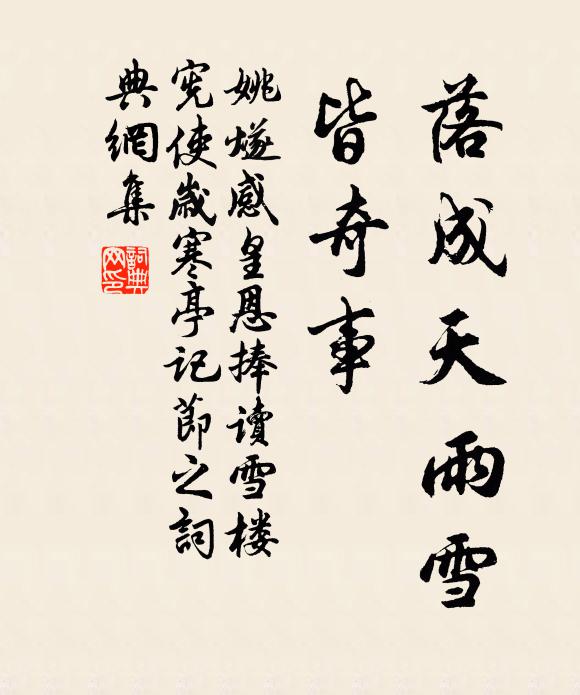 落成天雨雪
皆奇事
姚燧感皇恩捧读雪楼
宪使岁寒亭记节之词
典網集
詞典網印